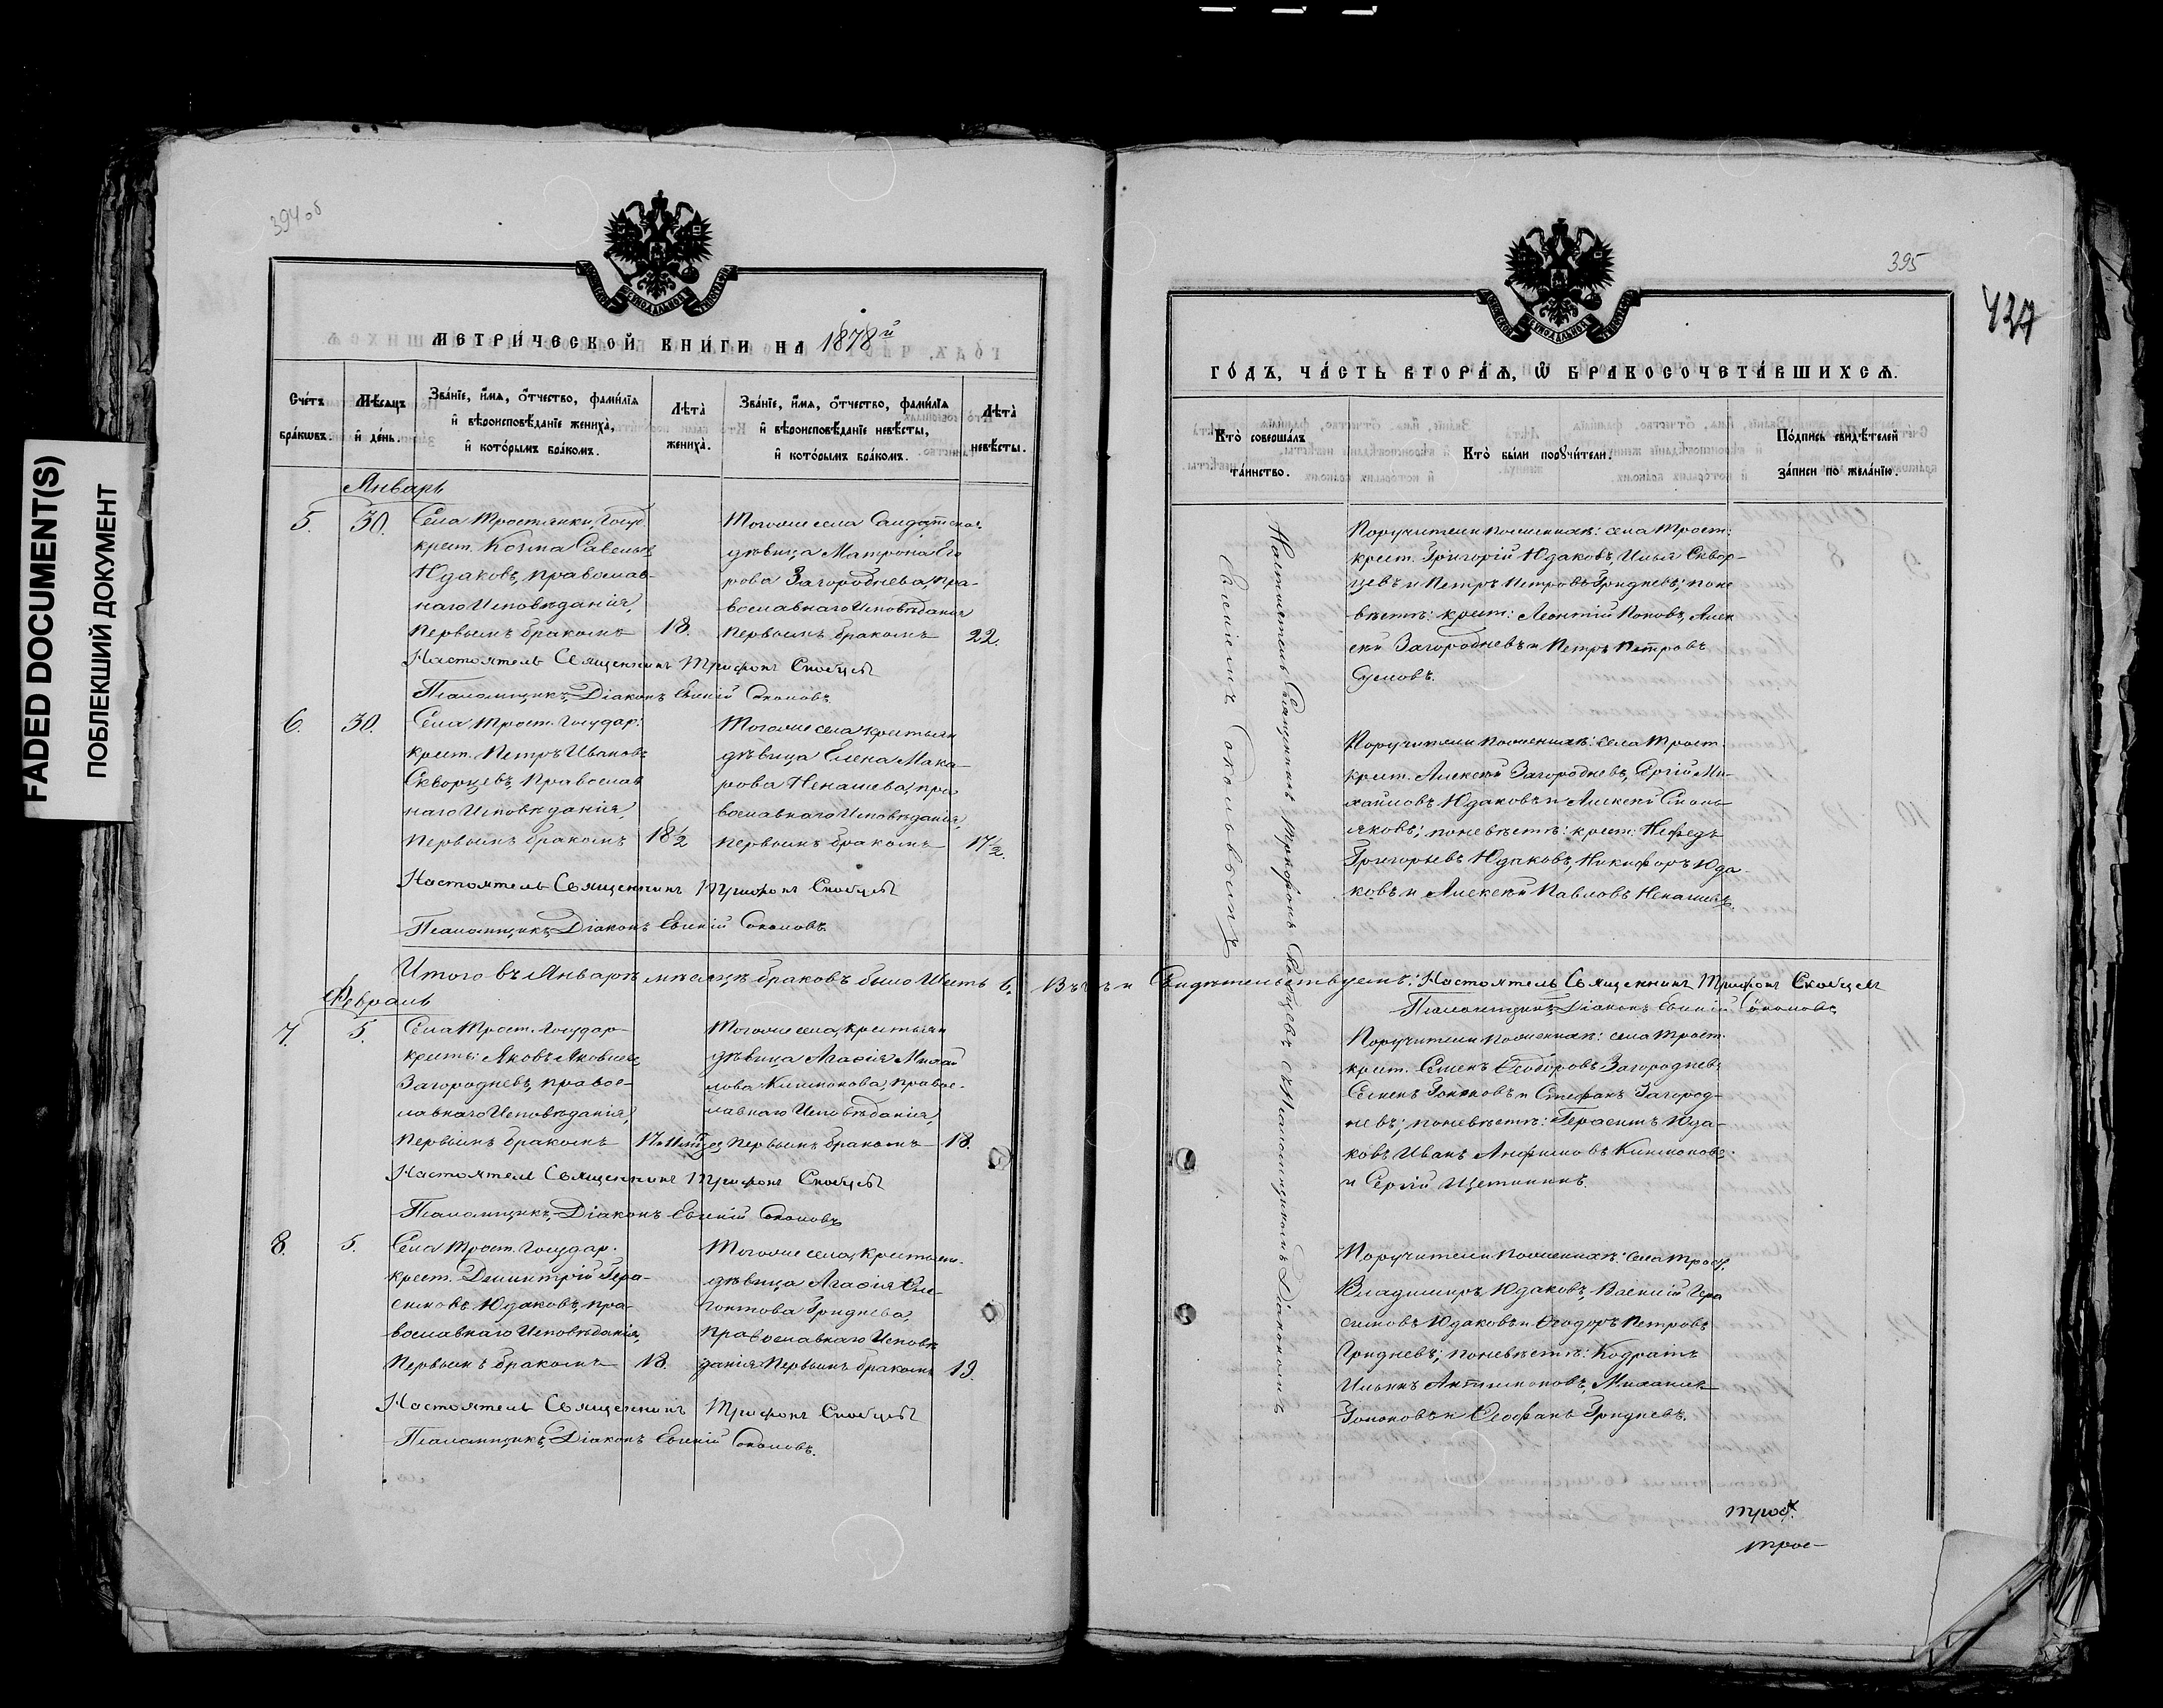 FADED DOCUMENT(S)
ПОБЛЕКШИЙ ДОКУМЕНТ
394 об
МЕТРИЧЕСКОЙ КНИГИ НА 1878й
Счетъ браковъ.
Мѣсяцъ и день.
Званіе, имя, отчество, фамилія и вѣроисповѣданіе жениха, и которымъ бракомъ.
Лѣта жениха.
Званіе, имя, отчество, фамилія и вѣроисповѣданіе невѣсты, и которымъ бракомъ.
Лѣта невѣсты.
Январь
5. 30.
Села Тростянки, Госуд.
крест. Козма Савельевъ
Юдаковъ, православ-
наго Исповѣданія,
первымъ бракомъ
18.
Тогоже села Солдатская
дѣвица Матрона Его
рова Загороднева, пра-
вославнаго Исповѣданія
первымъ бракомъ
22.
Настоятель Священникъ Трифонъ Скобцевъ
Псаломщикъ, Діаконъ Евсигній Соколовъ
6. 30.
Села Трост. Государ.
крест. Петръ Ивановъ
Скворцевъ, Православ
наго Исповѣданія,
первымъ бракомъ
18½
Тогоже села крестьян
дѣвица Елена Мака-
рова Ненашева, пра
вославнаго Исповѣданія,
первымъ бракомъ
17½.
Настоятель Священникъ Трифонъ Скобцевъ
Псаломщикъ, Діаконъ Соколовъ
Итого въ Январѣ мѣсяцѣ браковъ было Шесть 6.
Февраль
7. 5.
Села Трост. Государ
крестъ: Яковъ Яковлевъ
Загородневъ, правос-
лавнаго Исповѣданія,
первымъ бракомъ
Тогоже села, крестьян
дѣвица Агафія Михай
лова Климонова, правос-
лавнаго Исповѣданія,
первымъ бракомъ
18.
Настоятель Священникъ Трифонъ Скобцевъ
Псаломщикъ, Діаконъ Соколовъ
8. 5.
Села Трост. Государ.
крест. Димитрій Гера-
симовъ Юдаковъ, пра-
вославнаго Исповѣданія,
первымъ бракомъ
18.
Тогоже села, крестьян.
дѣвица Агафія
Гриднева,
православнаго Исповѣ
данія первымъ бракомъ
19.
Настоятель Священникъ Трифонъ Скобцевъ
Псаломщикъ, Діаконъ Соколовъ.
395
427
ГОДЪ, ЧАСТЬ ВТОРАЯ, О БРАКОСОЧЕТАВШИХСЯ.
Кто совершалъ таинство.
Кто были поручители.
Подпись свидѣтелей записи по желанію.
Настоятель Священникъ Трифонъ Скобцевъ съ Псаломщикомъ Діакономъ
Соколовымъ
Поручители по женихѣ: села Трост:
крест. Григорій Юдаковъ, Илья Сквор-
цевъ и Петръ Петровъ Гридневъ; по не
вѣстѣ: крест: Леонтій Поповъ, Алек
сѣй Загородневъ и Петръ Петровъ
Поручители по женихѣ: села Трост.
крест. Алексѣй Загородневъ, Сергій Ми-
хайловъ Юдаковъ и Алексѣй
по невѣстѣ: крест: Нефедъ
Григорьевъ Юдаковъ, Никифоръ Юда
ковъ и Алексѣй Павловъ Ненашевъ.
Свидѣтельствуемъ: Настоятель Священникъ Трифонъ Скобцевъ
Псаломщикъ, Діаконъ Соколовъ
Поручители по женихѣ: села Трост.
крест. Семенъ Ѳедоровъ Загородневъ
Семенъ и Стефанъ Загород-
невъ; по невѣстѣ: Герасимъ Юда-
ковъ Иванъ Анфимовъ Климоновъ
и Сергій Щетининъ.
Поручители по женихѣ: села Трост.
Владиміръ Юдаковъ, Василій Гера
симовъ Юдаковъ и Ѳеодоръ Петровъ
Гридневъ; по невѣстѣ: Кодратъ
Ильинъ Антимоновъ, Михаилъ
и Ѳеофанъ Гридневъ.
трос.
трос-